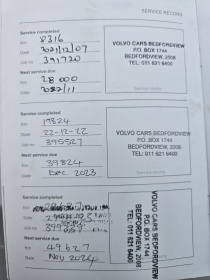 SERVICE RECORD
Service completed
Km 8316
Date 2021/12/07
Job no 391720
Next service due
Km 28 000
Date 2022/11
VOLVO CARS BEDFORDVIEW
P.O. BOX 1744
BEDFORDVIEW, 2008
TEL: 011 621 6400
Service completed
Km 19824
Date 22-12-22
Job no 395527
Next service due
Km 39824
Date Dec 2023
VOLVO CARS BEDFORDVIEW
P.O. BOX 1744
BEDFORDVIEW, 2008
TEL: 011 621 6400
Service completed
Km
Date
Job no
Next service due
Km 49627
Date Nov 2024
VOLVO CARS BEDFORDVIEW
P.O. BOX 1744
BEDFORDVIEW, 2008
TEL: 011 621 6400